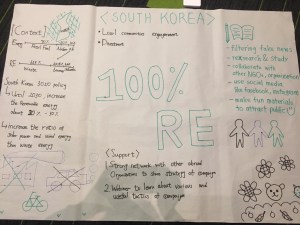 <SOUTH KOREA>
<Context>
• Local communities engagement
• Divestment
RE
South Korea 2030 policy
↳ Until 2030, increase
the Renewable energy
about 20%
↳ increase the ratio of
solar power and wind energy
than waste energy
100%
RE
<Support>
1. Strong network with other abroad
Organizations to share strategy of campaign
2. Webinar to learn about various and
useful tactics of campaign
• filtering fake news
• research & study
• collaborate with
other NGOs, organizations
• use social media
like facebook, instagram
• make fun materials
to attract public